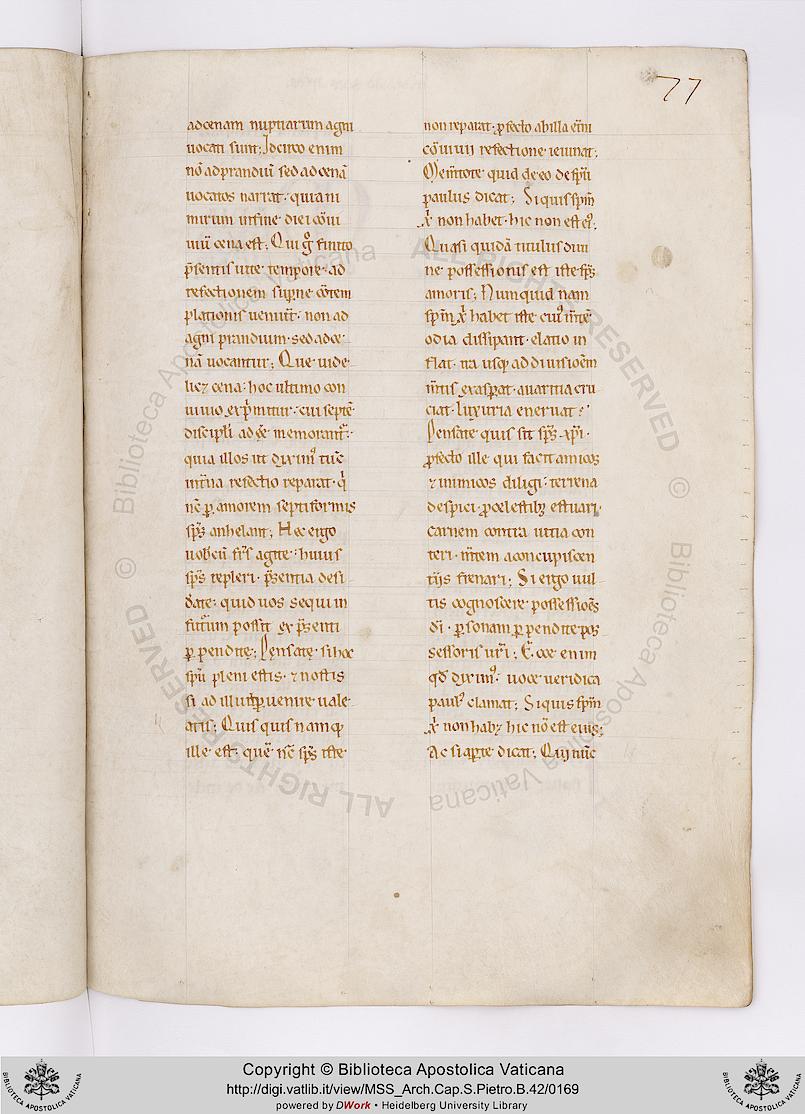 77
adcenam nuptiarum agni
uocati sunt; Idcirco enim
nō adprandiū sed ad cenā
uocatos narrat· quia ni
mirum infine diei cōui
uiū cena est; Qui gͦ finito
p̄sentis uite tempore· ad
refectionem supne cōtem
plationis ueniūt· non ad
agni prandium· sed ad ce
nā uocantur; Que uide
licꝫ cena· hoc ultimo con
uiuio exp̄mitur· cui septē
discipli adeē memorant᷑·
quia illos ut diximꝰ tūc
int̄na refectio reparat· q̄
nc̄ ꝑ amorem septiformis
sp̄s anhelant; Hec ergo
uobcū fr̄s agite· huius
sp̄s repleri· p̄sentia desi
d̄ate· quid uos sequi in
futurum possit ex p̄senti
ꝑpendite; Pensate· si hoc
spū pleni estis· ⁊ nostis
si ad illud ꝑuenire uale
atis; Quis quis namqꝫ
ille est· quē nc̄ sp̄s iste
non reparat· ꝓfecto ab illa et̄ni
cōuiuii refectione ieiunat;
Mem̄tote quid de eo desp̄u
paulus dicat; Siquis sp̄m
x̄ non habet· hic non est eiꝰ·
Quasi quidā titulus diui
ne possessionis est iste sp̄s
amoris; Nunquid nam
sp̄m x̄ habet iste cuiꝰ m̄tē
odia dissipant· elatio in
flat· ira usqꝫ ad diuisiōem
m̄tis exasꝑat· auaritia cru
ciat· luxuria eneruat?
Pensate quis sit sp̄s xp̄i·
ꝓfecto ille qui facit amicos
⁊ inimicos diligi· terrena
despici· ꝓcelestibꝫ estuari·
carnem contra uitia con
teri· m̄tem a concupiscen
tiis frenari; Si ergo uul
tis cognoscere possessiōēs
dī· ꝑsonam ꝑpendite pos
sessoris ur̄i; Ecce enim
qd̄ diximꝰ· uoce ueridica
paulꝰ clamat; Siquis sp̄m
x̄ non habꝫ hic nō est eius;
Ac si aꝑte dicat; Qui nūc
© Biblioteca Apostolica Vaticana ALL RIGHTS RESERVED
© Biblioteca Apostolica Vaticana ALL RIGHTS RESERVED
Copyright © Biblioteca Apostolica Vaticana
http://digi.vatlib.it/view/MSS_Arch.Cap.S.Pietro.B.42/0169
powered by DWork • Heidelberg University Library
BIBLIOTECA APOSTOLICA VATICANA
BIBLIOTECA APOSTOLICA VATICANA